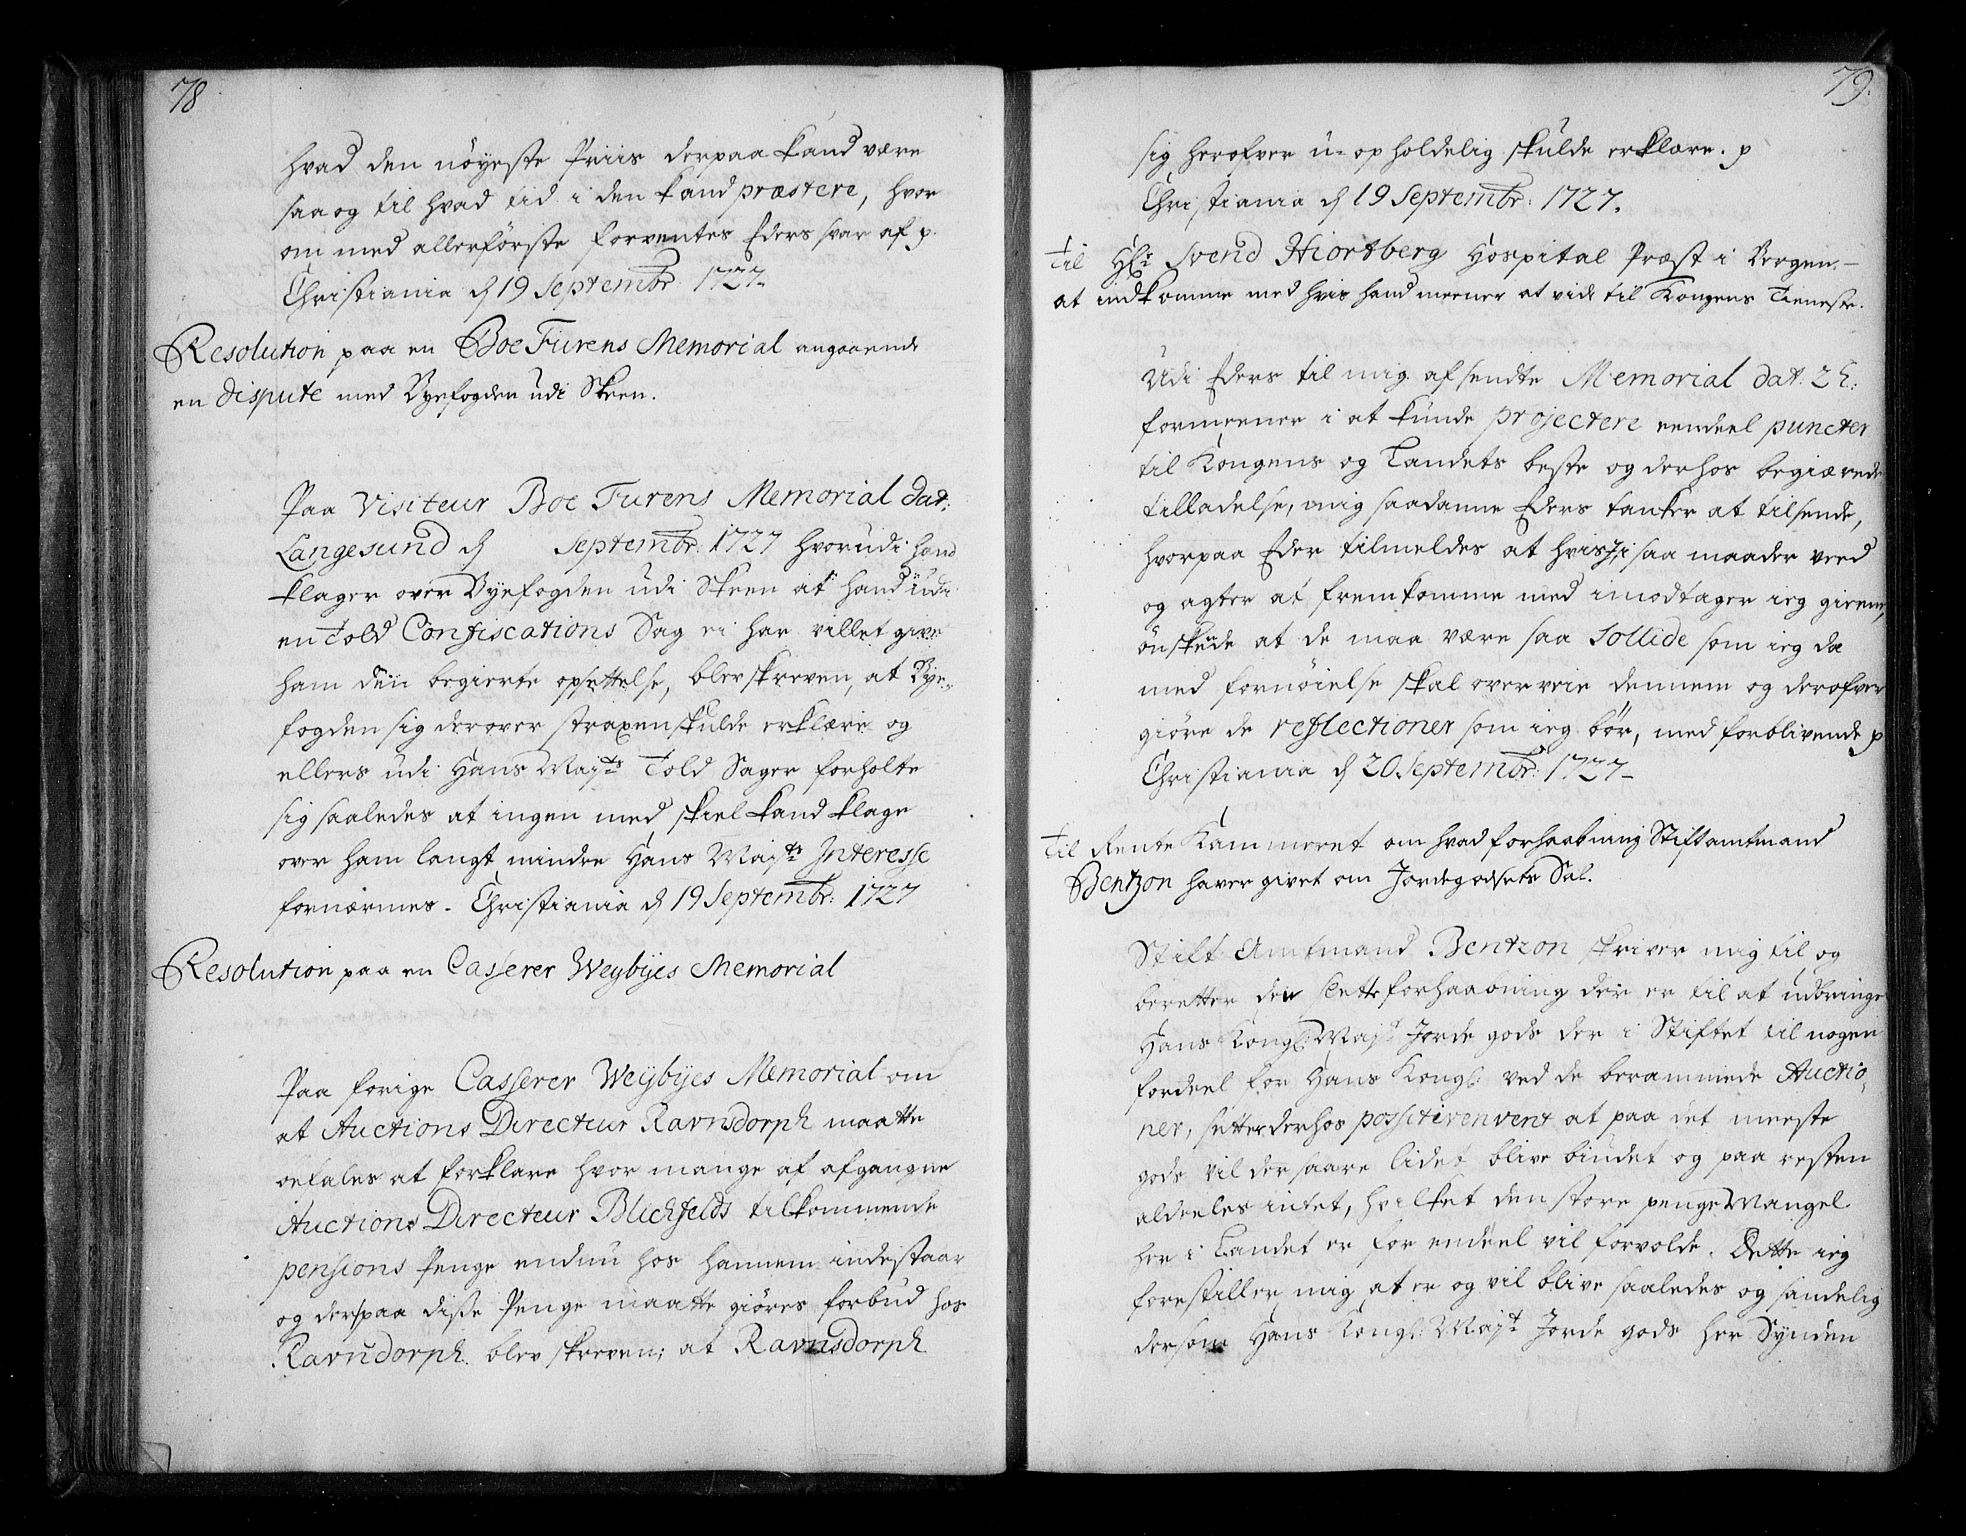 78
hvad den nöyeste Priis derpaa kand være
saa og til hvad tid i den kand præstere, hvor
om med allerförste forventes Eders svar af p.
Christiania d 19 Septembr: 1727.
Resolution paa en Boe Furens Memorial angaaende
en dispute med Byefogden udi Skeen.
Paa Visiteur Boe Furens Memorial dat:
Langesund d Septembr: 1727 hvorudi hand
klager over Byefogden udi Skeen at hand udi
en Told Confiscations Sag ei har villet give
ham den begierte opsettelse, blev skreven, at Bye-
fogden sig derover straxen skulde erklære og
ellers udi Hans Mayts Told Sager forholte
sig saaledes at ingen med skiel kand klage
over ham langt mindre Hans Mayts Interesse
fornærmes. Christiania d 19 Septembr: 1727
Resolution paa en Casserer Weybyes Memorial
Paa forige Casserer Weybyes Memorial om
at Auctions Directeur Ravnsdorph maatte
befales at forklare hvor mange af afgangne
Auctions Directeur Blichfelds tilkommende
pensions Penge endnu hos hannem indestaar
og derpaa disse Penge maatte giöres forbud hos
Ravnsdorph. blev skreven; at Ravnsdorph
79.
sig herofver u-opholdelig skulde erklære. p
Christiania d 19 Septembr: 1727.
Til Hr Svend Hiortberg Hospital Præst i Bergen.
at indkomme med hvis hand meener at vide til Kongens Tieneste.
Udi Eders til mig afsendte Memorial dat: 2 h:
formeener i at kunde projectere eendeel puncter
til Kongens og Landets beste og derhos begiærede
tilladelse, mig saadanne Eders tanker at tilsende,
hvorpaa Eder tilmeldes at hvis I i saa maader veed
og agter at fremkomme med imodtager ieg gierne,
önskende at de maa være saa sollide som ieg da
med fornöielse skal overveie dennem og derofver
giöre de reflectioner som ieg bör, med forblivende p
Christiania d 20 Septembr: 1727
Til Rente Kammeret om hvad forhaabning Stiftamtmand
Bentzon haver givet om Jordegodsets Sal.
Stift Amtmand Bentzon skriver mig til og
beretter den slette forhaabning der er til at udbringe
Hans Kongl: Mayt Jorde gods der i Stiftet til nogen
fordeel for Hans Kongl: ved de berammede Auctio-
ner, setter derhos possitiven vent at paa det meeste
gods vil der saare lidet blive bindet og paa resten
aldeeles intet, hvilket den store penge Mangel
her i Landet er for endeel vil forvolde. Dette ieg
forestiller mig at er og vil blive saaledes og sandelig
dersom Hans Kongl: Mayt Jorde gods her Synden